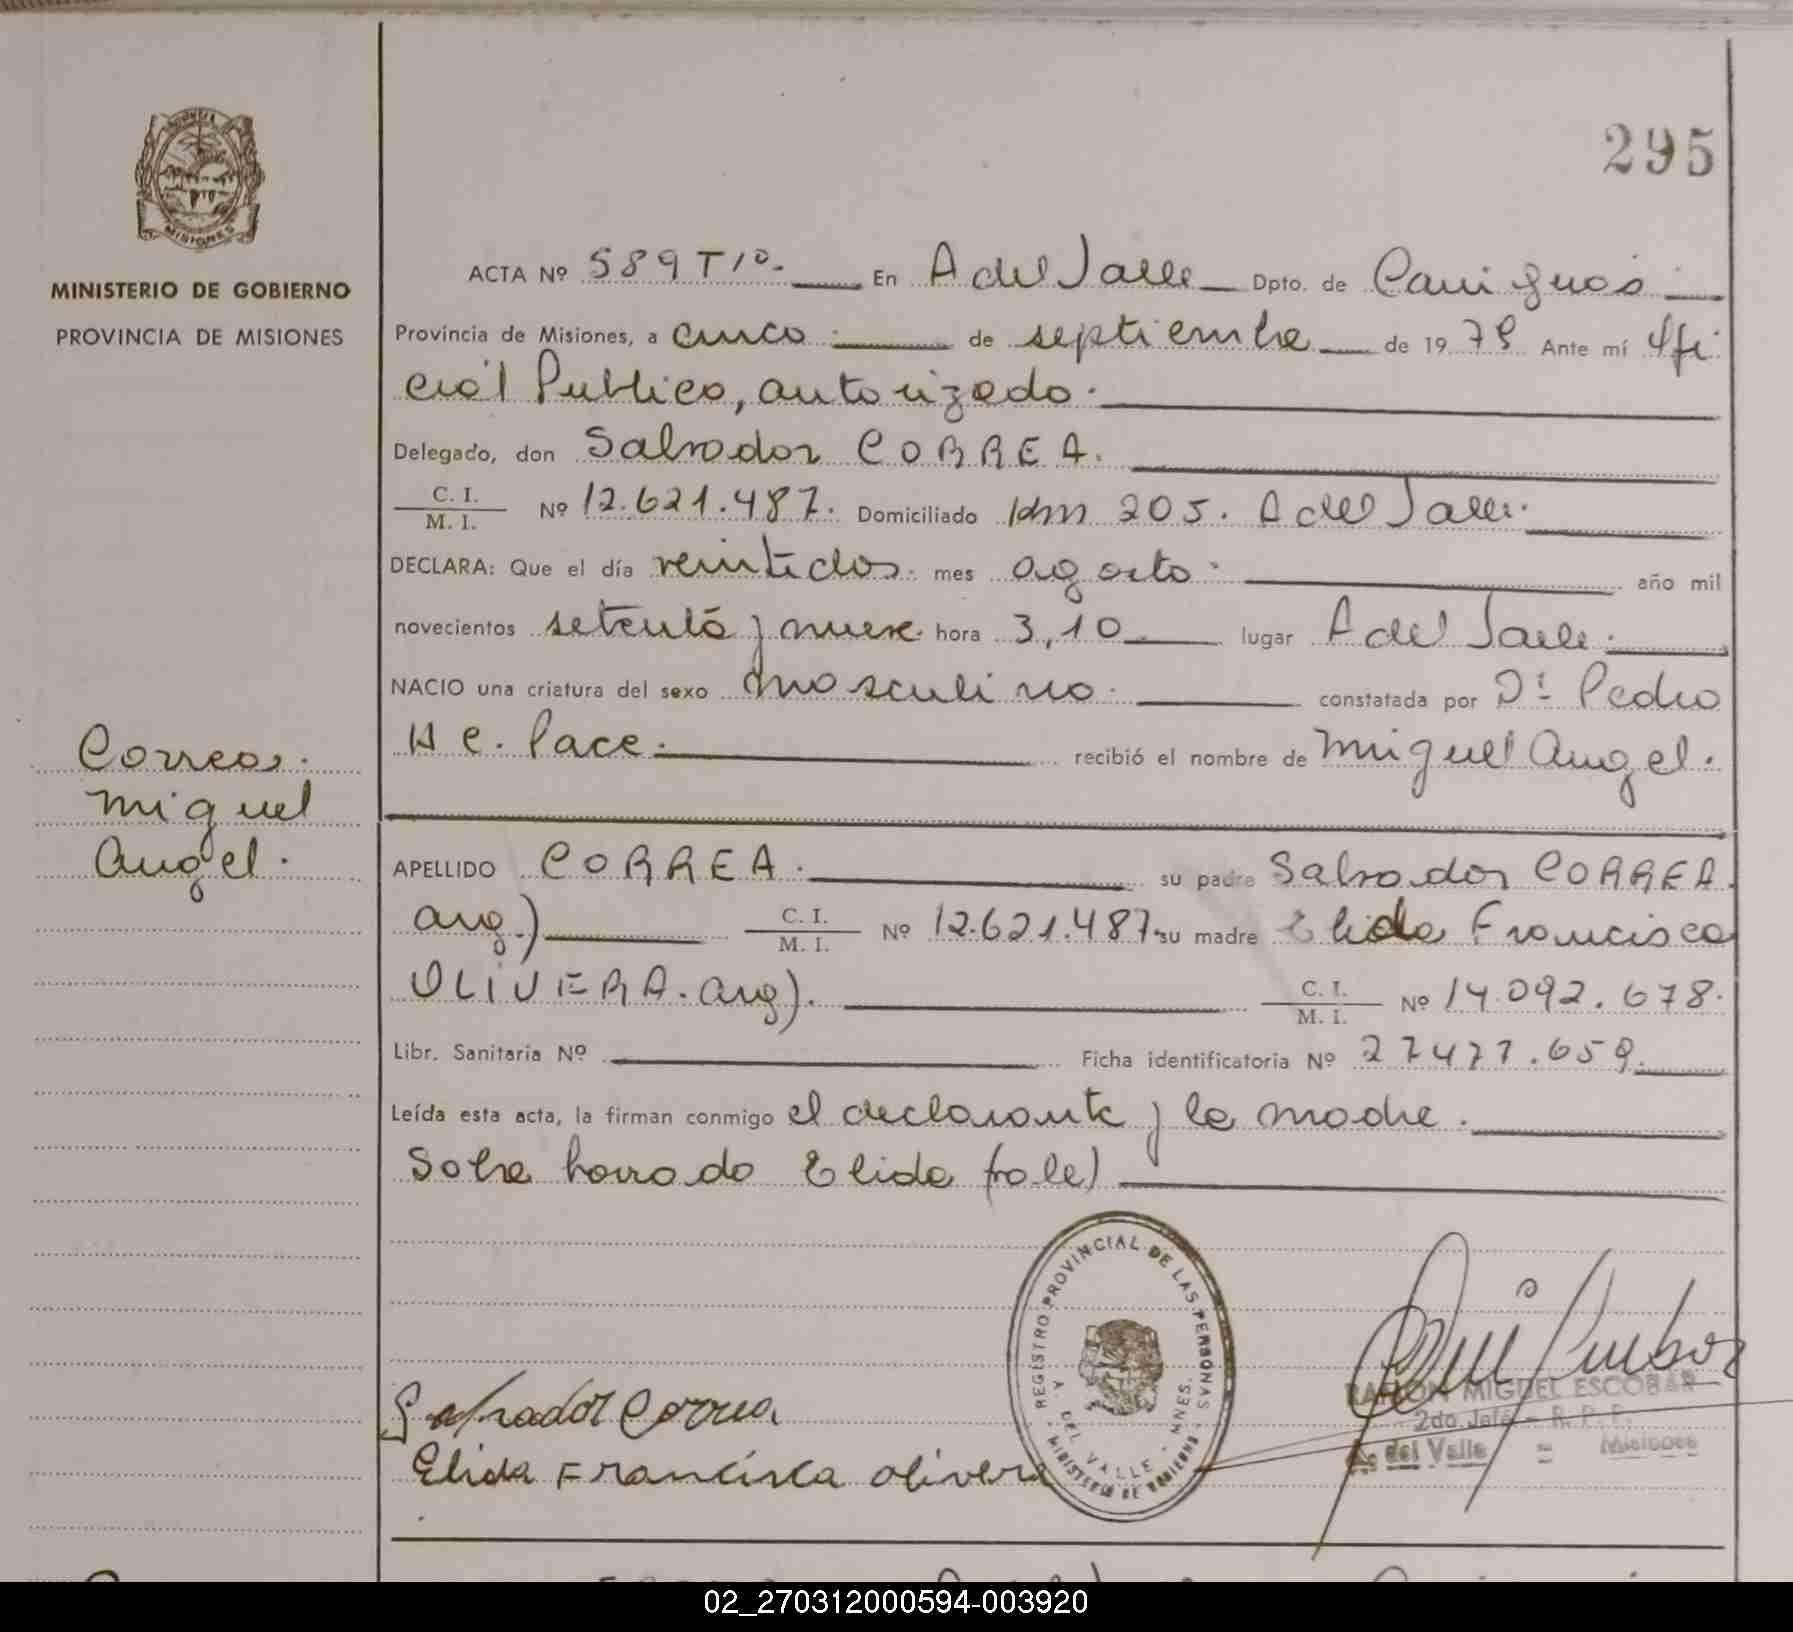 295
MISIONES
MINISTERIO DE GOBIERNO
PROVINCIA DE MISIONES
Correa.
Miguel
Angel.
ACTA Nº 589 T 1º. En A del Valle Dpto. de Cainguás
Provincia de Misiones, a cinco de septiembre de 1979 Ante mí Ofi
cial Publico, autorizado.
Delegado, don Salvador CORREA.
C. I.
M. I. Nº 12.621.487. Domiciliado Km 205. A del Valle.
DECLARA: Que el día veintidos mes agosto año mil
novecientos setenta y nueve hora 3,10 lugar A del Valle.
NACIO una criatura del sexo masculino. constatada por Dr. Pedro
H C. Pace. recibió el nombre de Miguel Angel.
APELLIDO CORREA. su padre Salvador CORREA
arg.) C. I.
M. I. Nº 12.621.487. su madre Elida Francisca
OLIVERA. arg). C. I.
M. I. Nº 14.092.678.
Libr. Sanitaria Nº Ficha identificatoria Nº 27477.659.
Leída esta acta, la firman conmigo el declarante y la madre.
Sobre borrado Elida (vale)
REGISTRO PROVINCIAL DE LAS PERSONAS
A DEL VALLE - MNES.
MINISTERIO DE GOBIERNO
Salvador Correa
Elida Francisca Olivera
RAMON MIGUEL ESCOBAR
2do. Jefe - R. P. P.
A. del Valle - Misiones
02_270312000594-003920